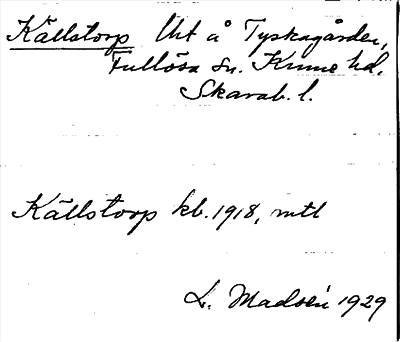 Källstorp Uht å Tyskagården,
Fullösa sn. Kinne hd.
Skarab. l.
Källstorp kb. 1918, mtl
L. Madsén 1929